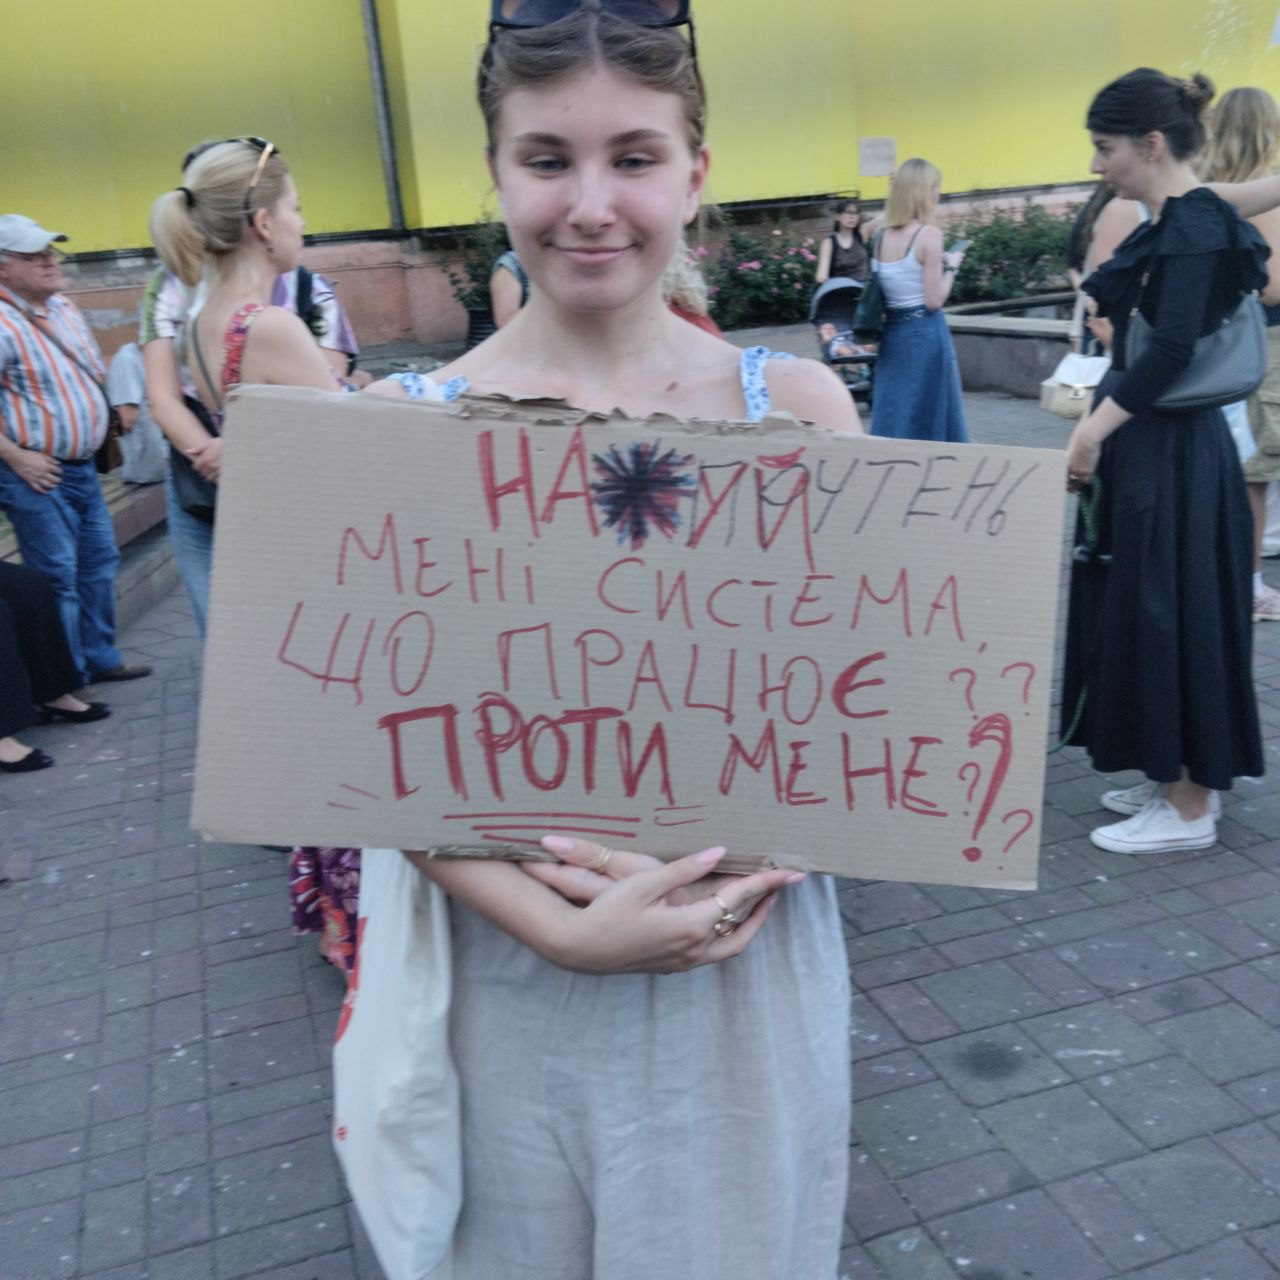 НА*УЙ ПКУТЕНЬ
МЕНІ СИСТЕМА,
ЩО ПРАЦЮЄ ??
ПРОТИ МЕНЕ???